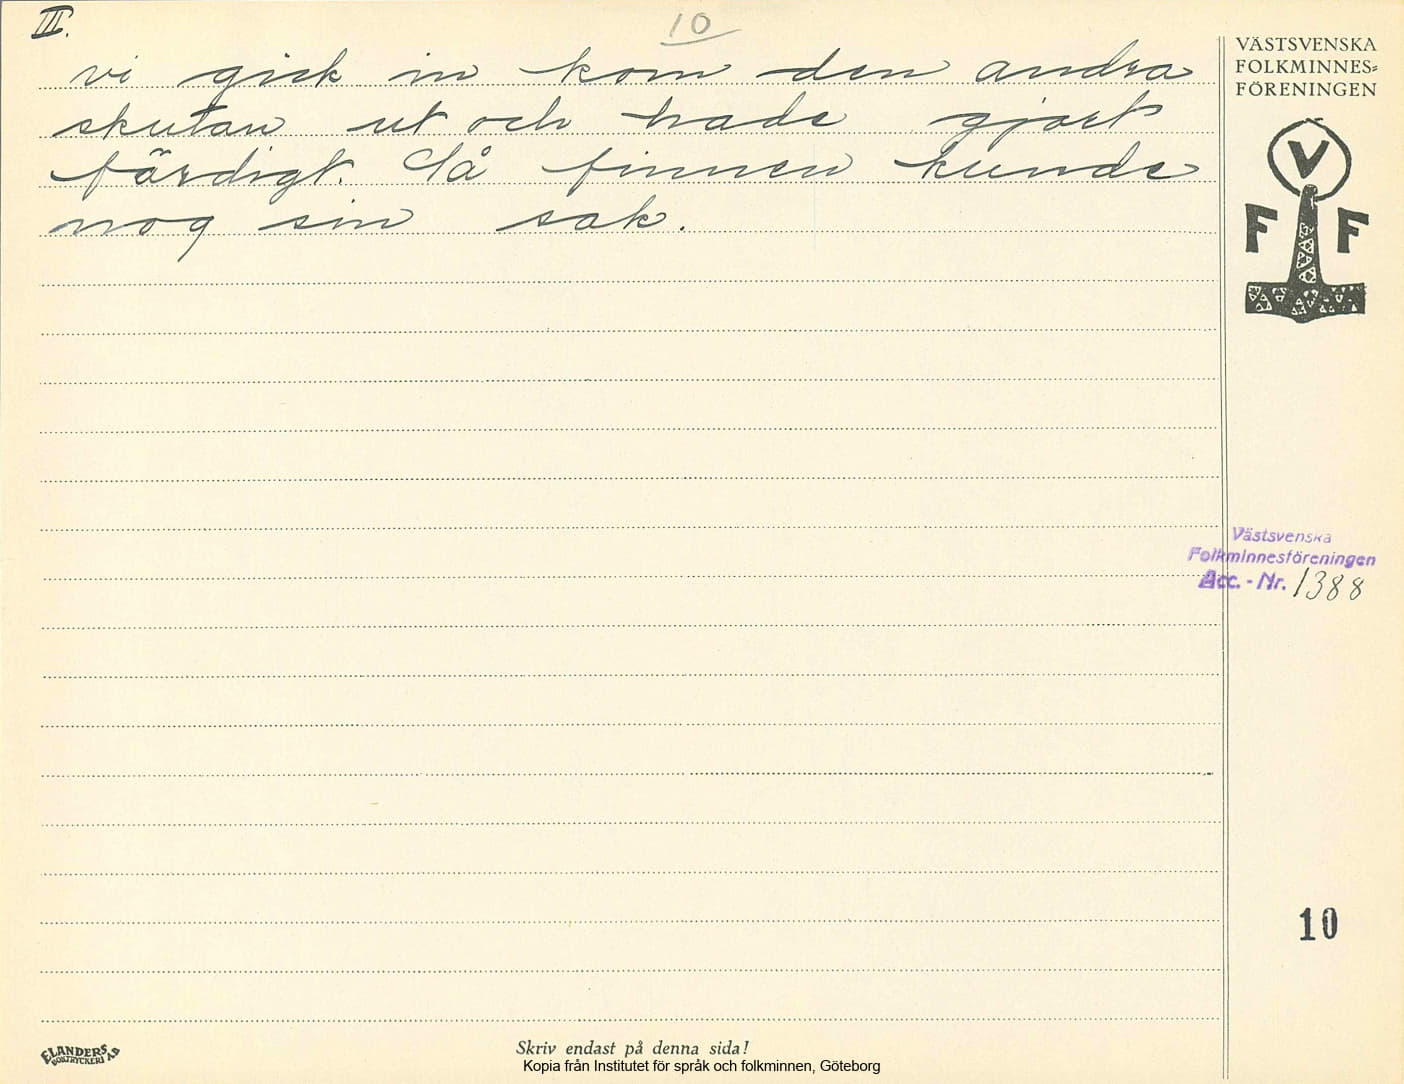 III.
10
vi gick in kom den andra
skutan ut och hade gjort
färdigt. Så finnen kunde
nog sin sak.
VÄSTSVENSKA
FOLKMINNES=
FÖRENINGEN
V
F F
Västsvenska
Folkminnesföreningen
Acc.-Nr. 1388
10
ELANDERS
BOKTRYCKERI AB
Skriv endast på denna sida!
Kopia från Institutet för språk och folkminnen, Göteborg